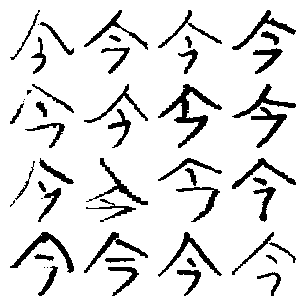 今今今今
今今今今
今今今今
今今今今